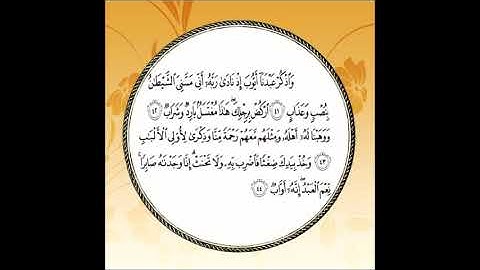 وَاذْكُرْ عَبْدَنَا أَيُّوبَ إِذْ نَادَىٰ رَبَّهُ أَنِّي مَسَّنِيَ الشَّيْطَانُ
بِنُصْبٍ وَعَذَابٍ ٤١ ارْكُضْ بِرِجْلِكَ هَٰذَا مُغْتَسَلٌ بَارِدٌ وَشَرَابٌ ٤٢
وَوَهَبْنَا لَهُ أَهْلَهُ وَمِثْلَهُم مَّعَهُمْ رَحْمَةً مِّنَّا وَذِكْرَىٰ لِأُولِي الْأَلْبَابِ
٤٣ وَخُذْ بِيَدِكَ ضِغْثًا فَاضْرِب بِّهِ وَلَا تَحْنَثْ إِنَّا وَجَدْنَاهُ صَابِرًا
نِّعْمَ الْعَبْدُ إِنَّهُ أَوَّابٌ ٤٤